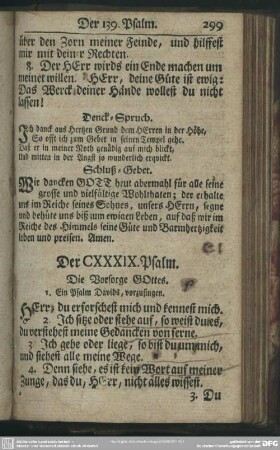 Der 139. Psalm. 299
über den Zorn meiner Feinde, und hilffest
mir mit deiner Rechten.
8. Der HErr wirds ein Ende machen um
meinet willen. HErr, deine Güte ist ewig:
Das Werck deiner Hände wollest du nicht
lassen!
Denck-Spruch.
Ich danck aus Hertzen Grund dem HErren in der Höhe,
So offt ich zum Gebet in seinen Tempel gehe.
Daß er in meiner Noth gnädig auf mich blickt,
Und mitten in der Angst so wunderlich erqvickt.
Schluß-Gebet.
Wir dancken GOTT heut abermahl für alle seine
grosse und vielfältige Wohlthaten; der erhalte
uns im Reiche seines Sohnes, unsers HErrn, segne
und behüte uns biß zum ewigen Leben, auf daß wir im
Reiche des Himmels seine Güte und Barmhertzigkeit
loben und preisen. Amen.
Der CXXXIX. Psalm.
Die Vorsorge GOttes.
1. Ein Psalm Davids, vorzusingen.
HErr, du erforschest mich und kennest mich.
2. Ich sitze oder stehe auf, so weist du es,
du verstehest meine Gedancken von ferne.
3 Ich gehe oder liege, so bist du um mich,
und siehest alle meine Wege.
4. Denn siehe, es ist kein Wort auf meiner
Zunge, das du, HErr, nicht alles wissest.
5. Du